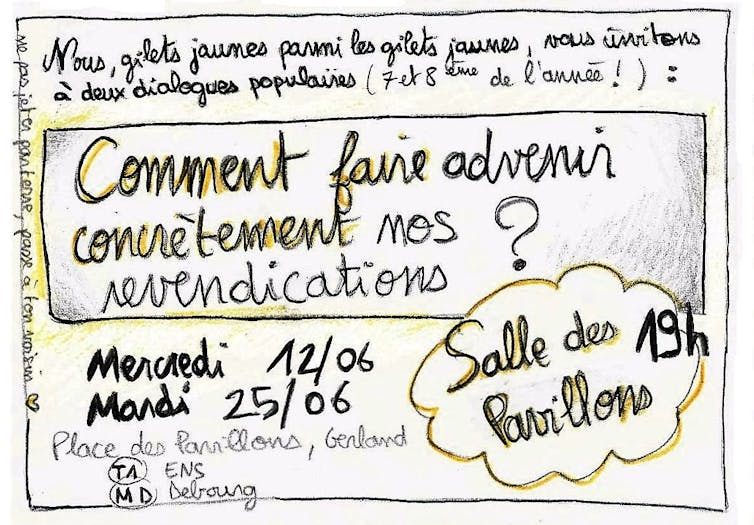 Nous, gilets jaunes parmi les gilets jaunes, vous invitons
à deux dialogues populaires (7 et 8 ème de l'année !) :
Comment faire advenir
concrètement nos
revendications ?
Mercredi 12/06
Mardi 25/06
Place des Pavillons, Gerland
T1 ENS
M D Debourg
Salle des 19h
Pavillons
ne pas jeter par terre, passe à ton voisin ♡